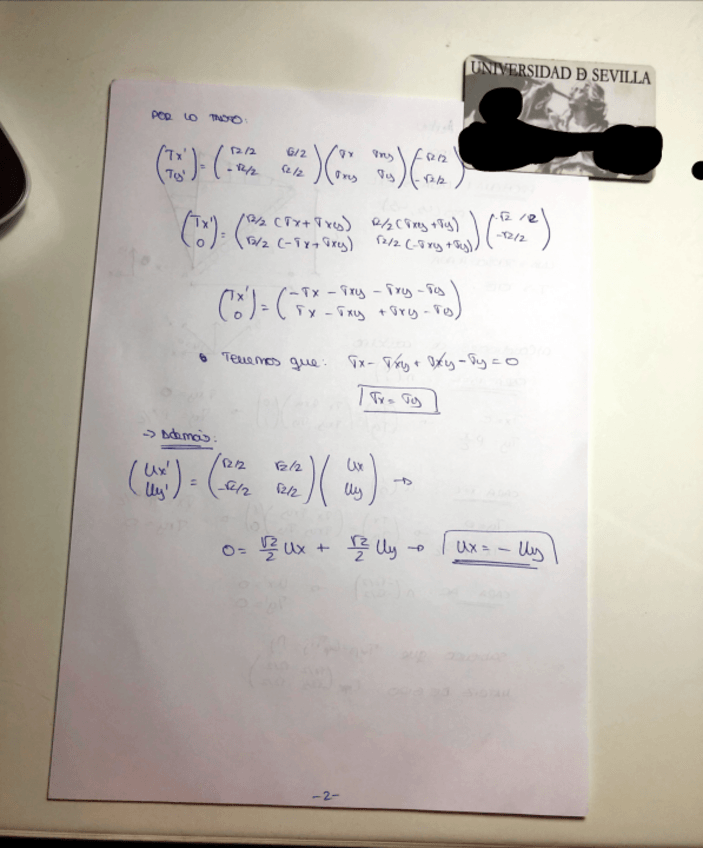 UNIVERSIDAD D SEVILLA
POR LO TANTO:
(Tx' Ty') = (√2/2 √2/2 -√2/2 √2/2) (σx σxy σxy σy) (-√2/2 -√2/2)
(Tx' 0) = (√2/2 (σx + σxy) √2/2 (σxy + σy) √2/2 (-σx + σxy) √2/2 (-σxy + σy)) (-√2/2 -√2/2)
(Tx' 0) = (-σx - σxy - σxy - σy σx - σxy + σxy - σy)
• Tenemos que: σx - σxy + σxy - σy = 0
σx = σy
-> Además:
(Ux' Uy') = (√2/2 √2/2 -√2/2 √2/2) (Ux Uy) →
0 = √2/2 Ux + √2/2 Uy → Ux = - Uy
-2-